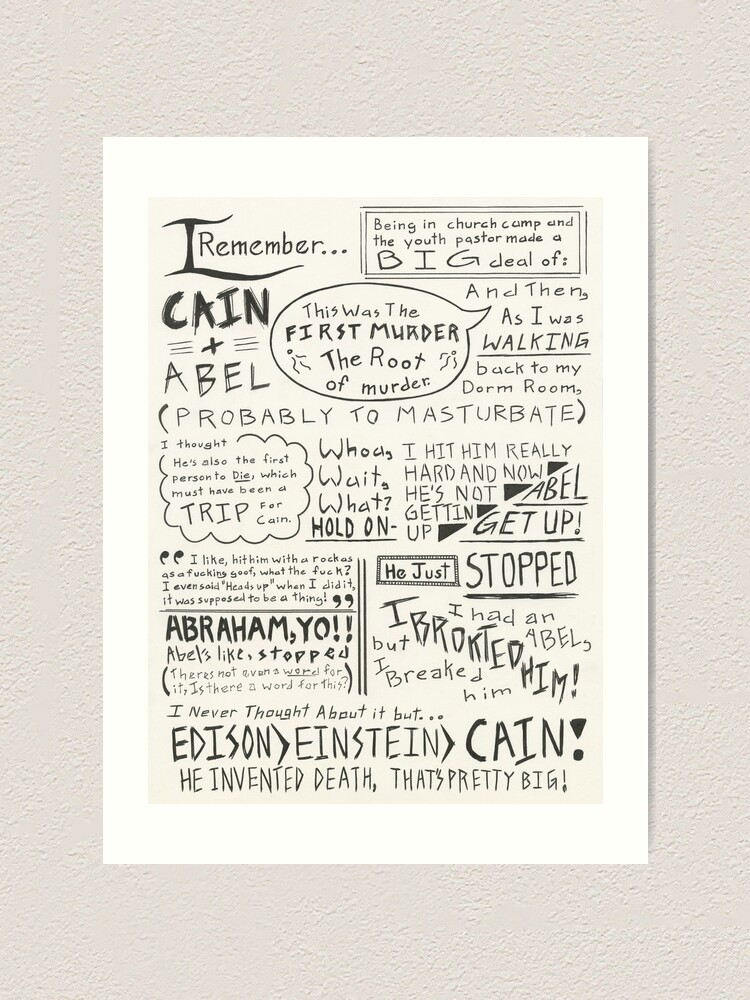 I Remember...
Being in church camp and
the youth pastor made a
BIG deal of:
CAIN
+
ABEL
This Was The
FIRST MURDER
The Root
of murder.
And Then,
As I was
WALKING
back to my
Dorm Room,
(PROBABLY TO MASTURBATE)
I thought
He's also the first
person to Die, which
must have been a
TRIP For
Cain.
Whoa,
Wait,
What?
HOLD ON-
I HIT HIM REALLY
HARD AND NOW
HE'S NOT
GETTIN
UP
ABEL
GET UP!
"I like, hit him with a rock as
as a fucking goof, what the fuck?
I even said "Heads up" when I did it,
it was supposed to be a thing!"
ABRAHAM, YO!!
Abel's like, stopped
(Theres not even a word for
it, Is there a word for this?)
He Just STOPPED
I had an
ABEL,
but
I BROKTED
HIM!
I Breaked
him
I Never Thought About it but...
EDISON>EINSTEIN>CAIN!
HE INVENTED DEATH, THAT'S PRETTY BIG!